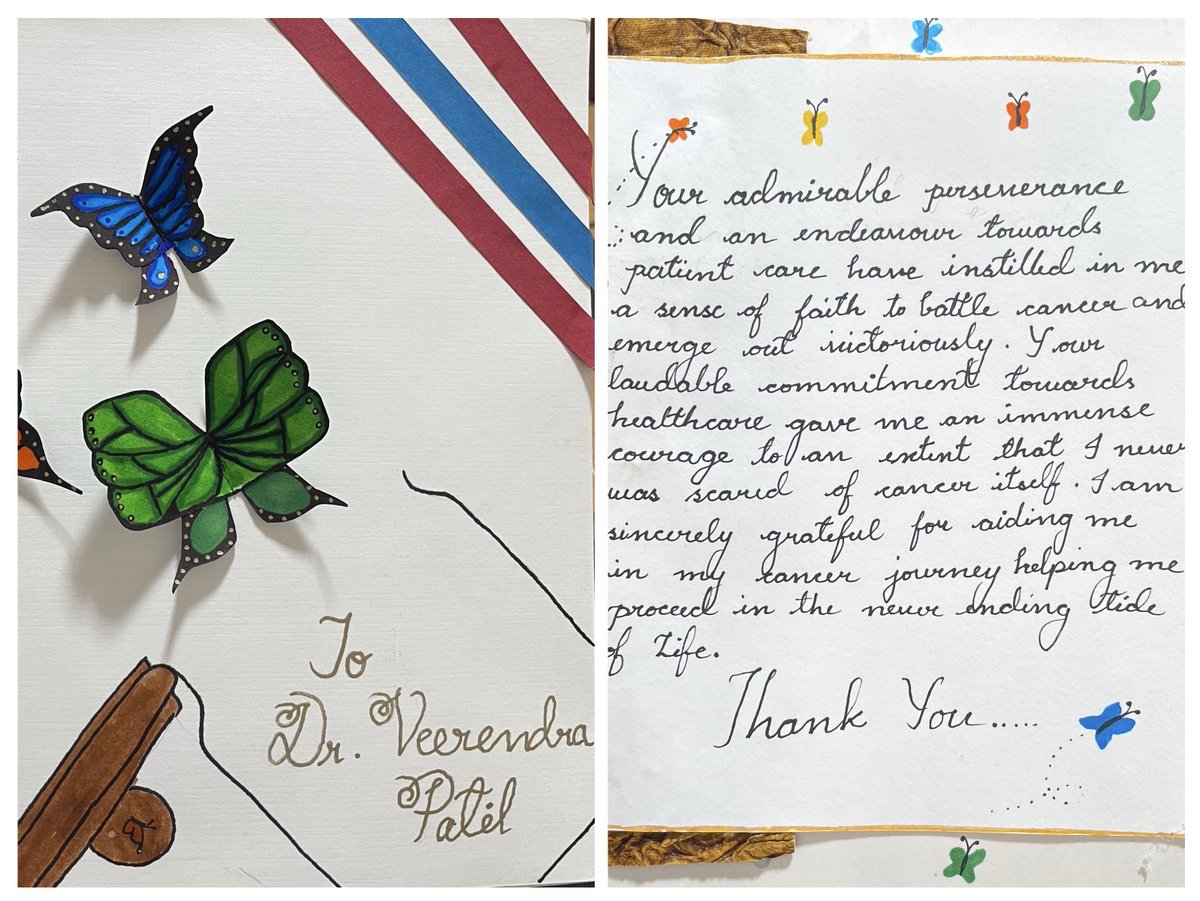 To
Dr. Veerendra
Patil
Your admirable perseverance
and an endeavour towards
patient care have instilled in me
a sense of faith to battle cancer and
emerge out victoriously. Your
laudable commitment towards
healthcare gave me an immense
courage to an extent that I never
was scared of cancer itself. I am
sincerely grateful for aiding me
in my cancer journey helping me
proceed in the never ending tide
of Life.
Thank You.....